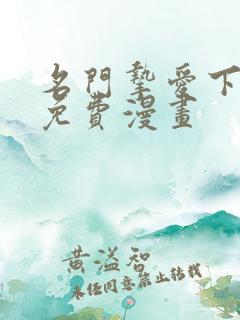 名門摯愛下
免費漫畫
黄溢智
未经同意禁止转载